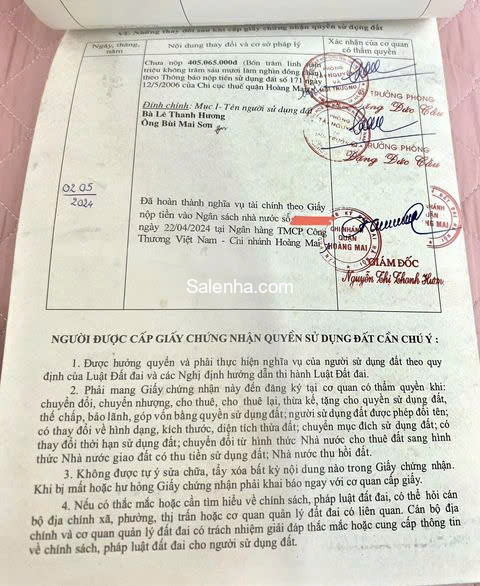 VI- Những thay đổi sau khi cấp giấy chứng nhận quyền sử dụng đất
Ngày, tháng, năm
Nội dung thay đổi và cơ sở pháp lý
Xác nhận của cơ quan có thẩm quyền
Chưa nộp 405.065.000đ (Bốn trăm linh năm
triệu không trăm sáu mươi lăm nghìn đồng chẵn)
theo Thông báo nộp tiền sử dụng đất số 171 ngày
12/5/2006 của Chi cục thuế quận Hoàng Mai
TRƯỞNG PHÒNG
Đặng Đức Cầu
Đính chính: Mục I- Tên người sử dụng đất
Bà Lê Thanh Hương
Ông Bùi Mai Sơn
TRƯỞNG PHÒNG
Đặng Đức Cầu
02/05
2024
Đã hoàn thành nghĩa vụ tài chính theo Giấy
nộp tiền vào Ngân sách nhà nước số
ngày 22/04/2024 tại Ngân hàng TMCP Công
Thương Việt Nam - Chi nhánh Hoàng Mai
CHI NHÁNH
QUẬN
HOÀNG MAI
GIÁM ĐỐC
Nguyễn Thị Thanh Hương
Salenha.com
NGƯỜI ĐƯỢC CẤP GIẤY CHỨNG NHẬN QUYỀN SỬ DỤNG ĐẤT CẦN CHÚ Ý :
1. Được hưởng quyền và phải thực hiện nghĩa vụ của người sử dụng đất theo quy
định của Luật Đất đai và các Nghị định hướng dẫn thi hành Luật Đất đai.
2. Phải mang Giấy chứng nhận này đến đăng ký tại cơ quan có thẩm quyền khi:
chuyển đổi, chuyển nhượng, cho thuê, cho thuê lại, thừa kế, tặng cho quyền sử dụng đất,
thế chấp, bảo lãnh, góp vốn bằng quyền sử dụng đất; người sử dụng đất được phép đổi tên;
có thay đổi về hình dạng, kích thước, diện tích thửa đất; chuyển mục đích sử dụng đất; có
thay đổi thời hạn sử dụng đất; chuyển đổi từ hình thức Nhà nước cho thuê đất sang hình
thức Nhà nước giao đất có thu tiền sử dụng đất; Nhà nước thu hồi đất.
3. Không được tự ý sửa chữa, tẩy xóa bất kỳ nội dung nào trong Giấy chứng nhận.
Khi bị mất hoặc hư hỏng Giấy chứng nhận phải khai báo ngay với cơ quan cấp giấy.
4. Nếu có thắc mắc hoặc cần tìm hiểu về chính sách, pháp luật đất đai, có thể hỏi cán
bộ địa chính xã, phường, thị trấn hoặc cơ quan quản lý đất đai có liên quan. Cán bộ địa
chính và cơ quan quản lý đất đai có trách nhiệm giải đáp thắc mắc hoặc cung cấp thông tin
về chính sách, pháp luật đất đai cho người sử dụng đất.